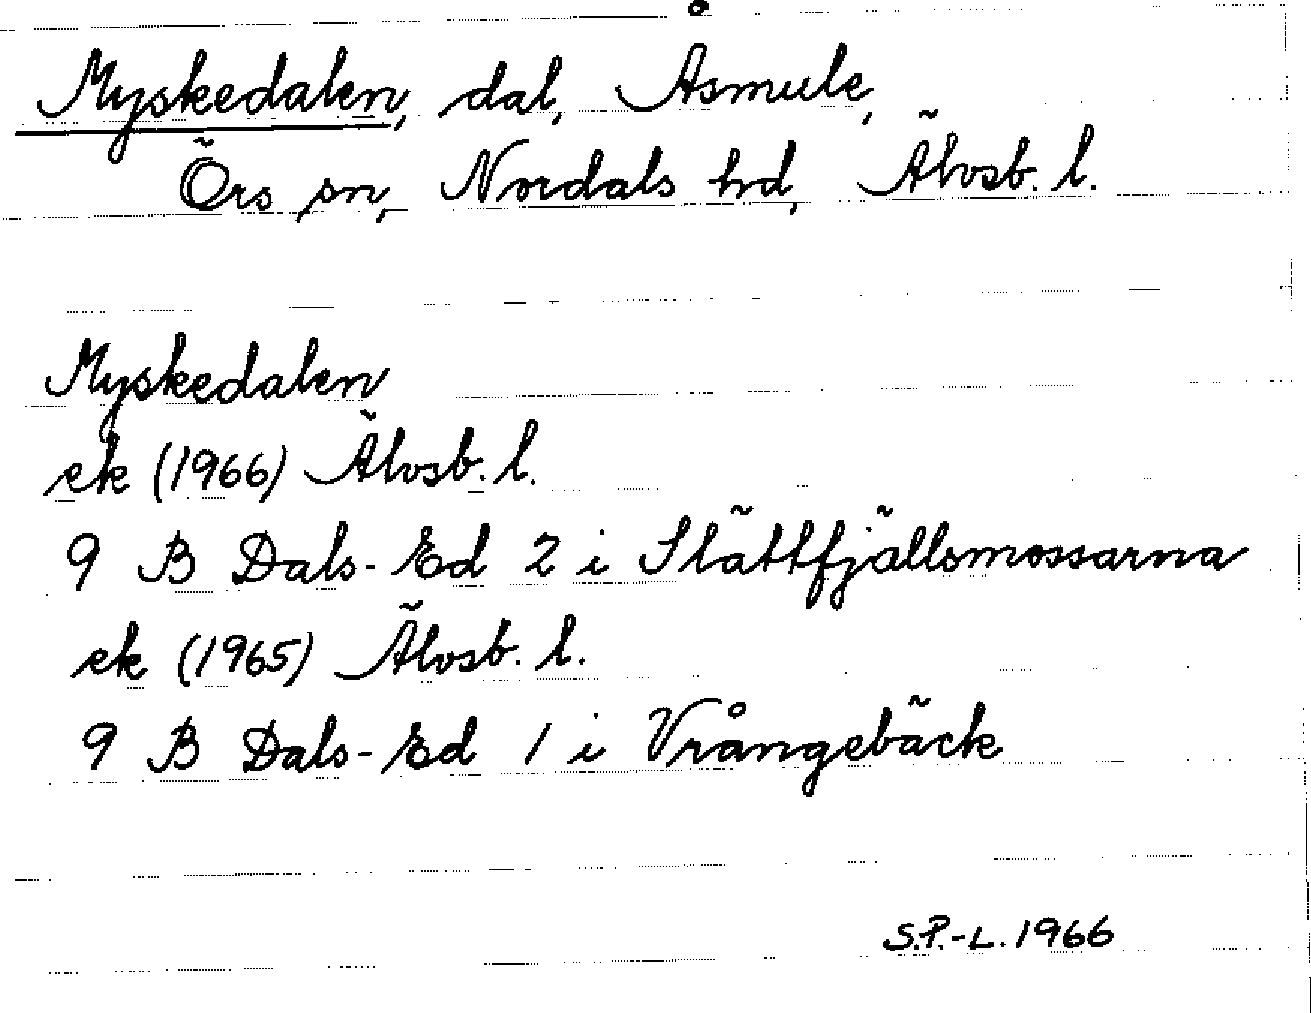 Myskedalen, dal, Åsmule,
Örs sn, Nordals hd, Älvsb. l.
Myskedalen
ek (1966) Älvsb. l.
9 B Dals-Ed 2 i Slättfjällsmossarna
ek (1965) Älvsb. l.
9 B Dals-Ed 1 i Vrångebäck
S.P.-L. 1966